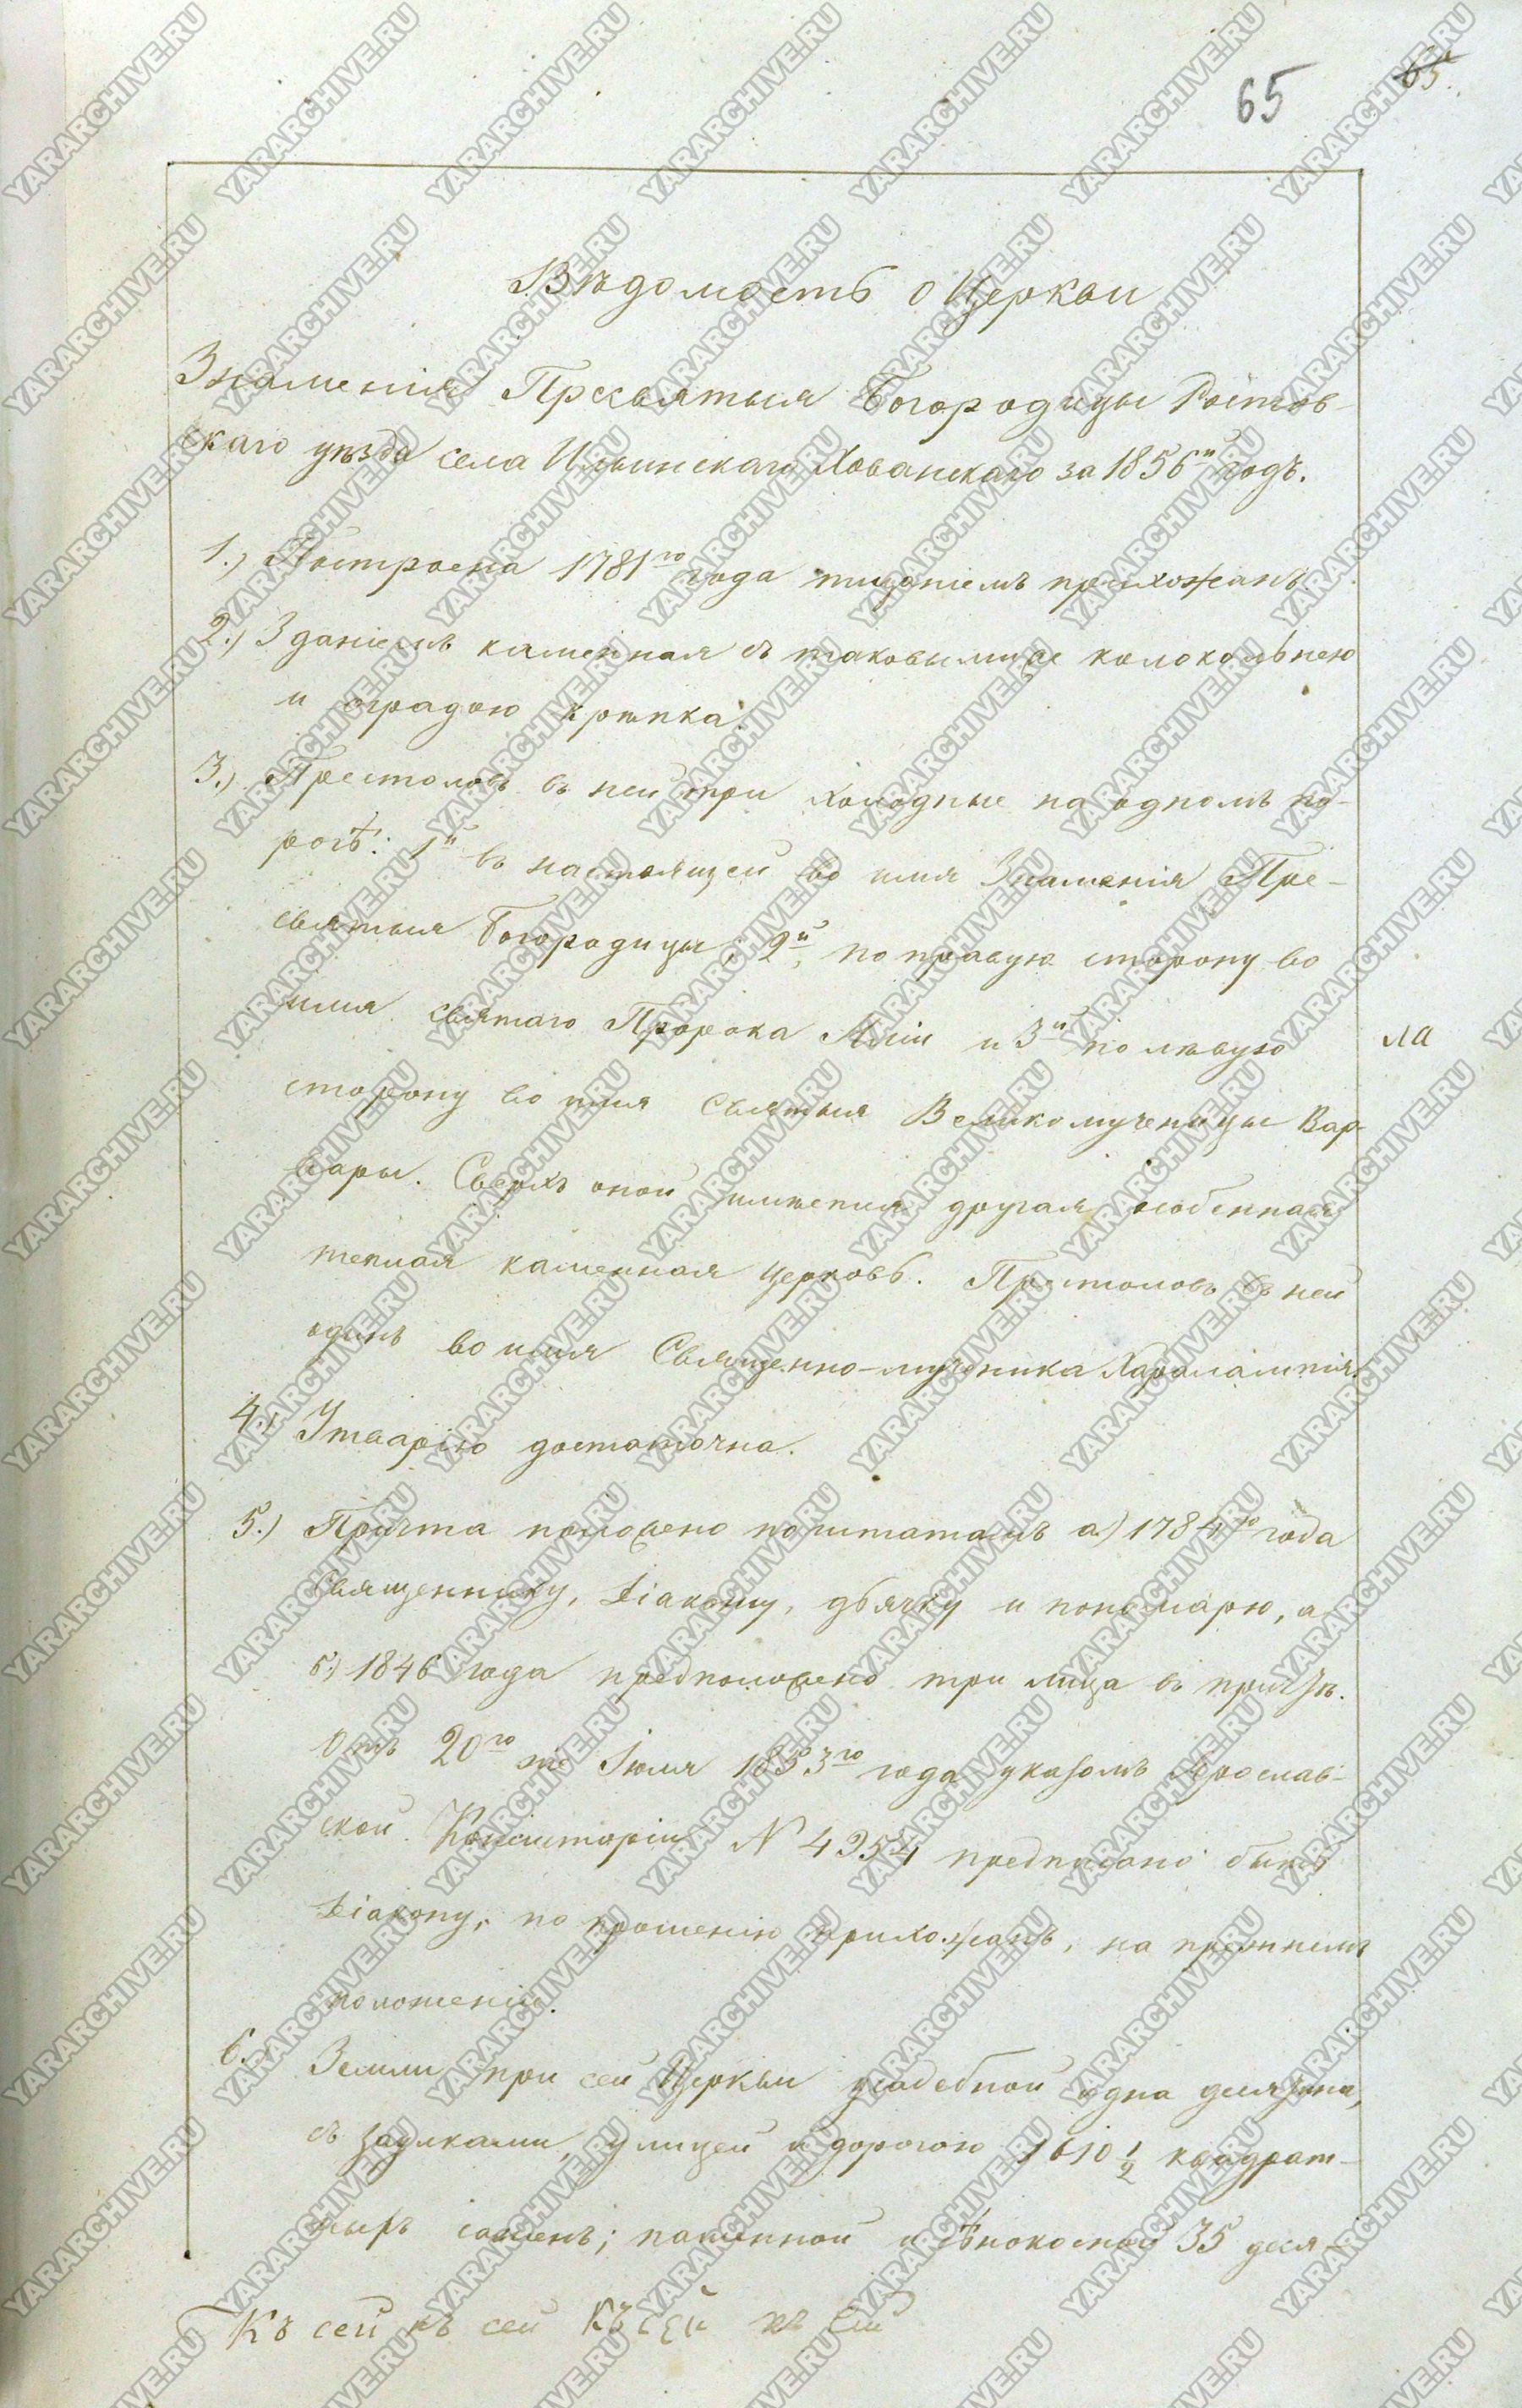 65
65.
Вѣдомость о Церкви
Знаменія Пресвятыя Богородицы Ростов-
скаго уѣзда села Ильинскаго Хованскаго за 1856й годъ.
1.) Построена 1781го года тщаніемъ прихожанъ.
2.) Зданіемъ каменная съ таковыми же колокольнею
и оградою крѣпка.
3.) Престоловъ въ ней три холодные на одномъ по-
рогѣ: 1й въ настоящей во имя Знаменія Пре-
святыя Богородицы, 2й, по правую сторону во
имя святаго Пророка Иліи и 3й по лѣвую
ла
сторону во имя святыя Великомученицы Вар-
вары. Сверхъ оной имѣется другая особенная
теплая каменная церковь. Престоловъ въ ней
одинъ во имя Священно-мученика Харалампія.
4.) Утварію достаточна.
5.) Причта положено по штатамъ а) 1784го года
Священнику, Діакону, дьячку и пономарю, а
б) 1846 года предположено три лица въ причтѣ.
Отъ 20го Іюля 1853го года указомъ Ярослав-
ской Консисторіи N 4954 предписано быть
Діакону, по прошенію прихожанъ, на прежнемъ
положеніи.
6. Земли при сей Церкви усадебной одна десятина,
съ заулками, улицей и дорогою 1610 1/2 квадрат-
ныхъ саженъ; пашенной и сѣнокосной 35 деся-
Къ сей къ сей къ сей къ сей
YARARCHIVE.RU